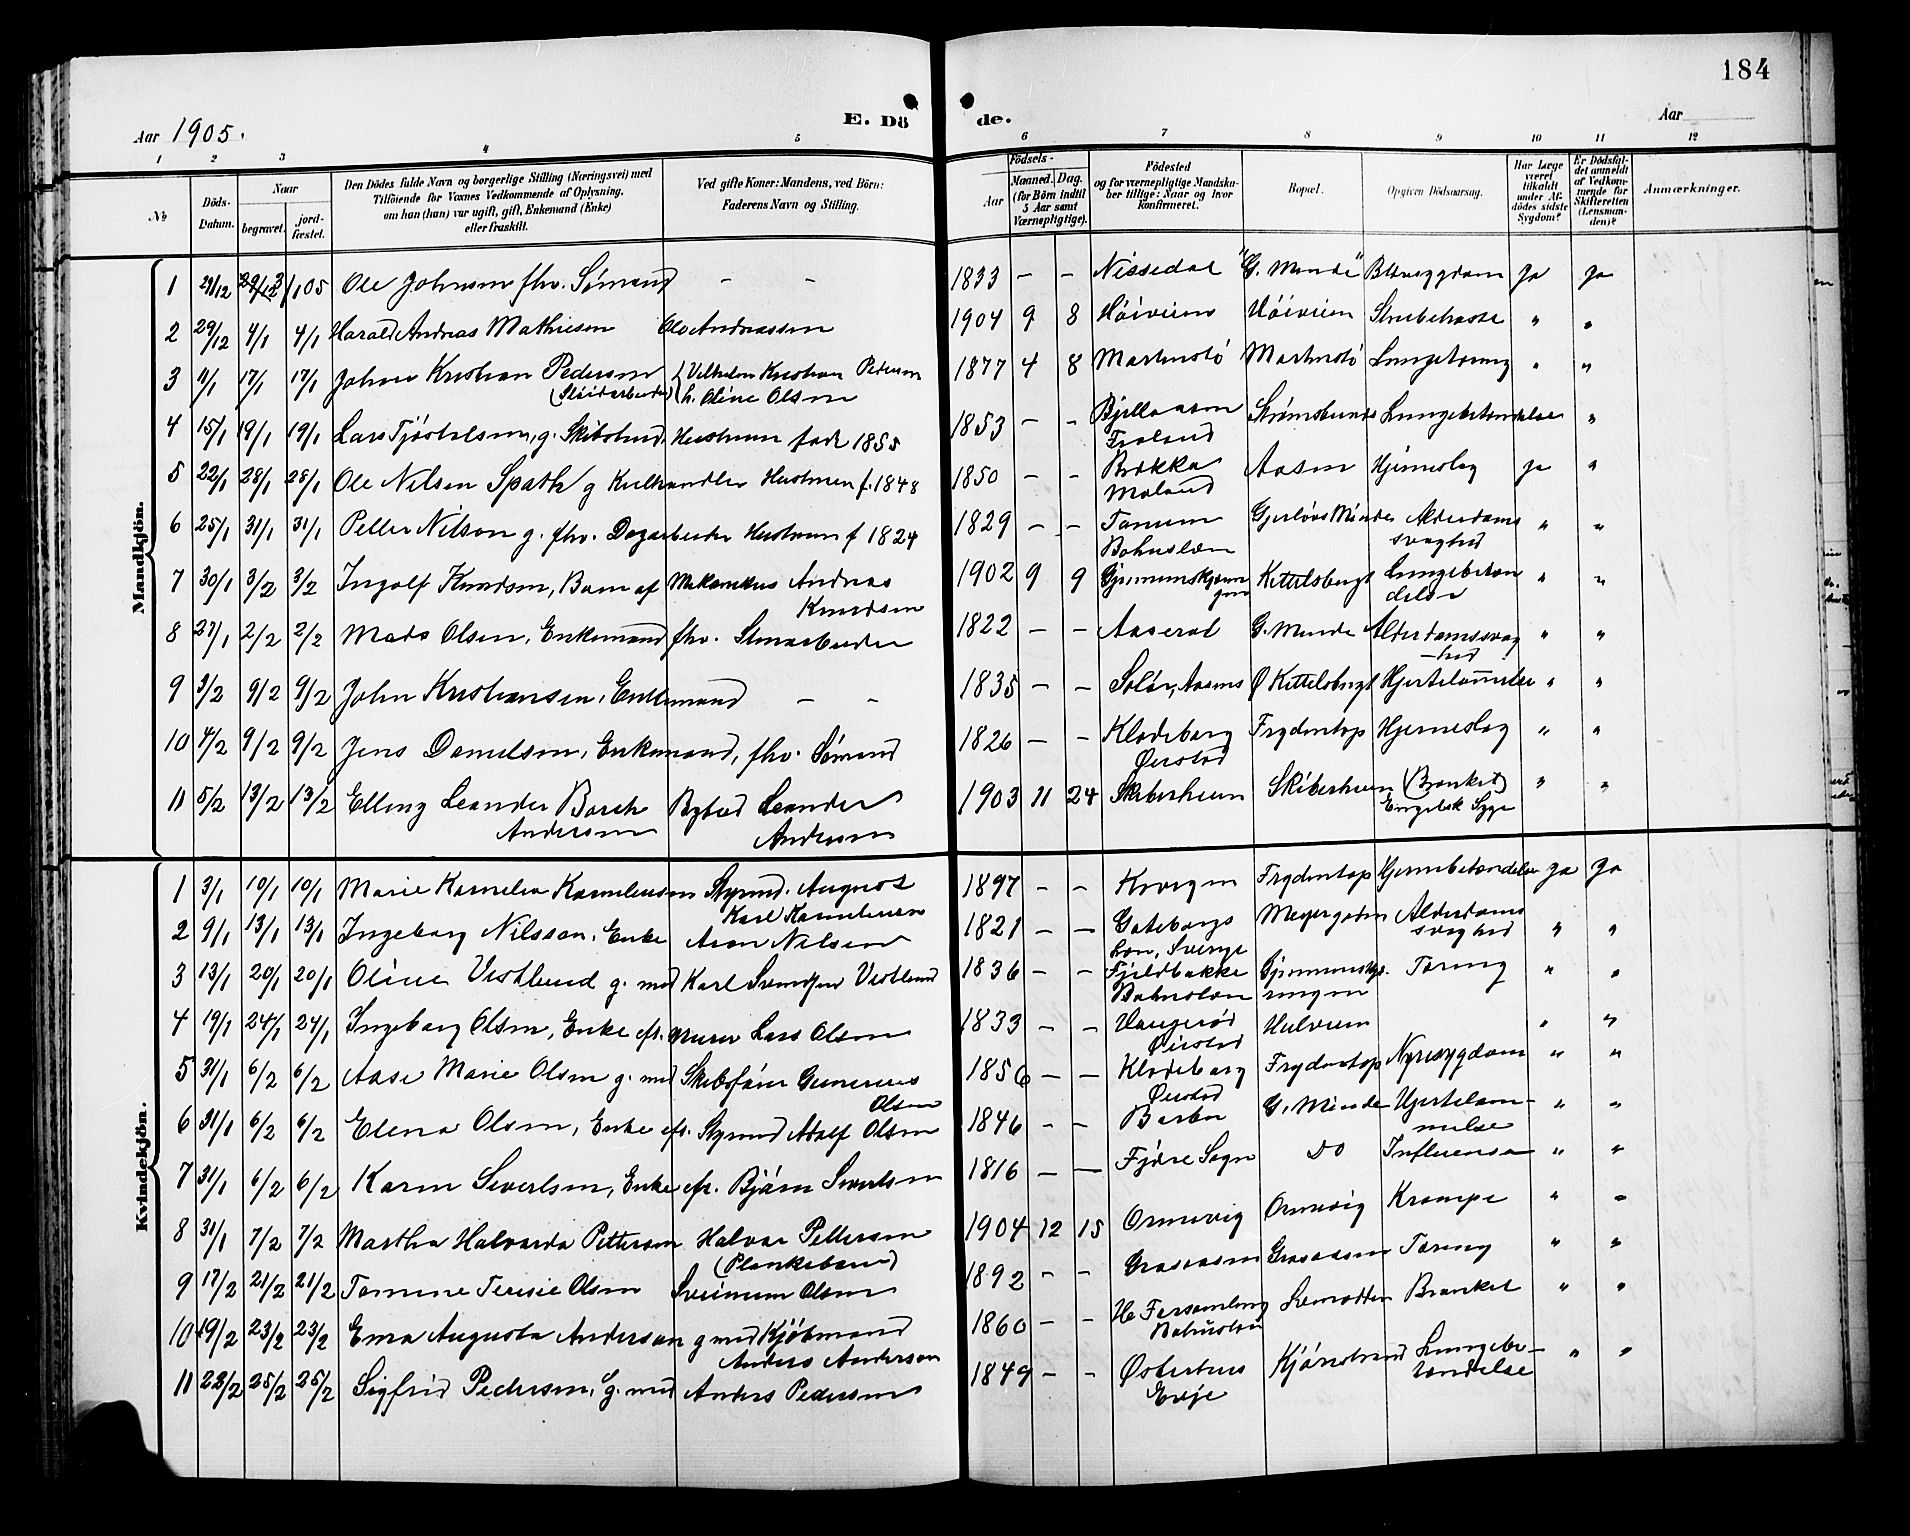 184
Aar 1905.
E. Dö de.
Aar
1 2 3 4 5 6 7 8 9 10 11 12
No
Döds-Datum.
Naar begravet. jordfæstet.
Den Dödes fulde Navn og borgerlige Stilling (Næringsvei) med Tilföiende for Voxnes Vedkommende af Oplysning, om han (hun) var ugift, gift, Enkemand (Enke) eller fraskilt.
Ved gifte Koner: Mandens, ved Börn: Faderens Navn og Stilling.
Födsels- Aar Maaned. Dag. (for Börn indtil 5 Aar samt Værnepligtige).
Födested og for værnepligtige Mandskaber tillige: Naar og hvor konfirmeret.
Bopæl.
Opgiven Dödsaarsag.
Har Læge været tilkaldt under Afdödes sidste Sygdom?
Er Dödsfaldet anmeldt af Vedkommende for Skifteretten (Lensmanden)?
Anmærkninger.
Mandkjön.
1 Ole Johnsen fhv. Sömand - - 1833 - - Nissedal "G. Minde" ja ja
2 29/12 4/1 4/1 Harald Andreas Mathiesen Ole Andreassen 1904 9 8 " "
3 11/1 17/1 17/1 Johan Kristian Pedersen Vilhelm Kristian Pedersen 1877 4 8 Lungetæring " "
(Sløidarbeider) h. Oline Olsen
4 15/1 19/1 19/1 Lars Tjöstelsen, g. Hustruen født 1855 1853 - - Lungebetændelse "
Froland
5 22/1 28/1 28/1 Ole Nilsen g Kulhandler Hustruen f. 1848 1850 - - Hjerneslag ja "
6 25/1 31/1 31/1 Petter Nilson g. fhv. Dagarbeider Hustruen f 1824 1829 - - Tanum Gjerløvs Minde Alderdoms " "
Bohuslen svaghed
7 30/1 3/2 3/2 Ingolf Knudsen, Barn af Mekanikus Andreas 1902 9 9 Kittelsbugt Lungebetæn " "
Knudsen delse
8 27/1 2/2 2/2 Mads Olsen, Enkemand fhv. Stenarbeider 1822 - - Aaseral G. Minde Alderdomssvag " "
-hed
9 3/2 9/2 9/2 John Kristiansen, Enkemand - - 1835 - - Ø Kittelsbugt Hjertelammelse " "
10 4/2 9/2 9/2 Jens Danielsen, Enkemand, fhv. Sömand 1826 - - Klodeborg Frydentop Hjerneslag " "
Øiestad
11 5/2 13/2 13/2 Elling Leander Borch Bybud Leander 1903 11 24 Skibsheien Skibsheien (Bronkit) " "
Andersen Andersen Engelsk Syge
Kvindekjön.
1 3/1 10/1 10/1 Marie Kornelia Korneliussen Styrmd. August 1897 - - Frydentop Hjernebetændelse ja ja
Karl Korneliussen
2 9/1 13/1 13/1 Ingeborg Nilsson, Enke Aron Nilsen 1821 - - Gøteborgs Meyergaden Alderdoms " "
Len, Sverige svaghed
3 13/1 20/1 20/1 Oline Vestlund g. med Karl Vestlund 1836 - - Fjeldbakke Tæring " "
Bohuslæn
4 19/1 24/1 24/1 Ingeborg Olsen, Enke eft. Murer Lars Olsen 1833 - - " "
Øiestad
5 31/1 6/2 6/2 Aase Marie Olsen g. med Skibsfører Gunerius 1856 - - Klodeborg Frydentop Nyresygdom " "
Olsen Øiestad
6 31/1 6/2 6/2 Elena Olsen, Enke eft. Styrmd Adolf Olsen 1846 - - Barbu G. Minde Hjertelam- " "
melse
7 31/1 6/2 6/2 Karen Severtsen, Enke eft. Bjørn Severtsen 1816 - - Fjære Sogn Do Influensa " "
8 31/1 7/2 7/2 Martha Halvarda Pettersen Halvar Pettersen 1904 12 15 Ormevig Ormevig Krampe " "
9 17/2 21/2 21/2 Tomine Teresie Olsen Sveinum Olsen 1892 - - Graaaasen Graaaasen Tæring " "
10 19/2 23/2 23/2 Emra Augusta Anderson g med Kjøbmand 1860 - - Bronkit " "
Anders Anderson Bohuslen
11 22/2 25/2 25/2 Sigfrid Pedersen, G. med Anders Pedersen 1849 - - Østerhus Kjørrestrand Lungebe- " "
Evje tændelse